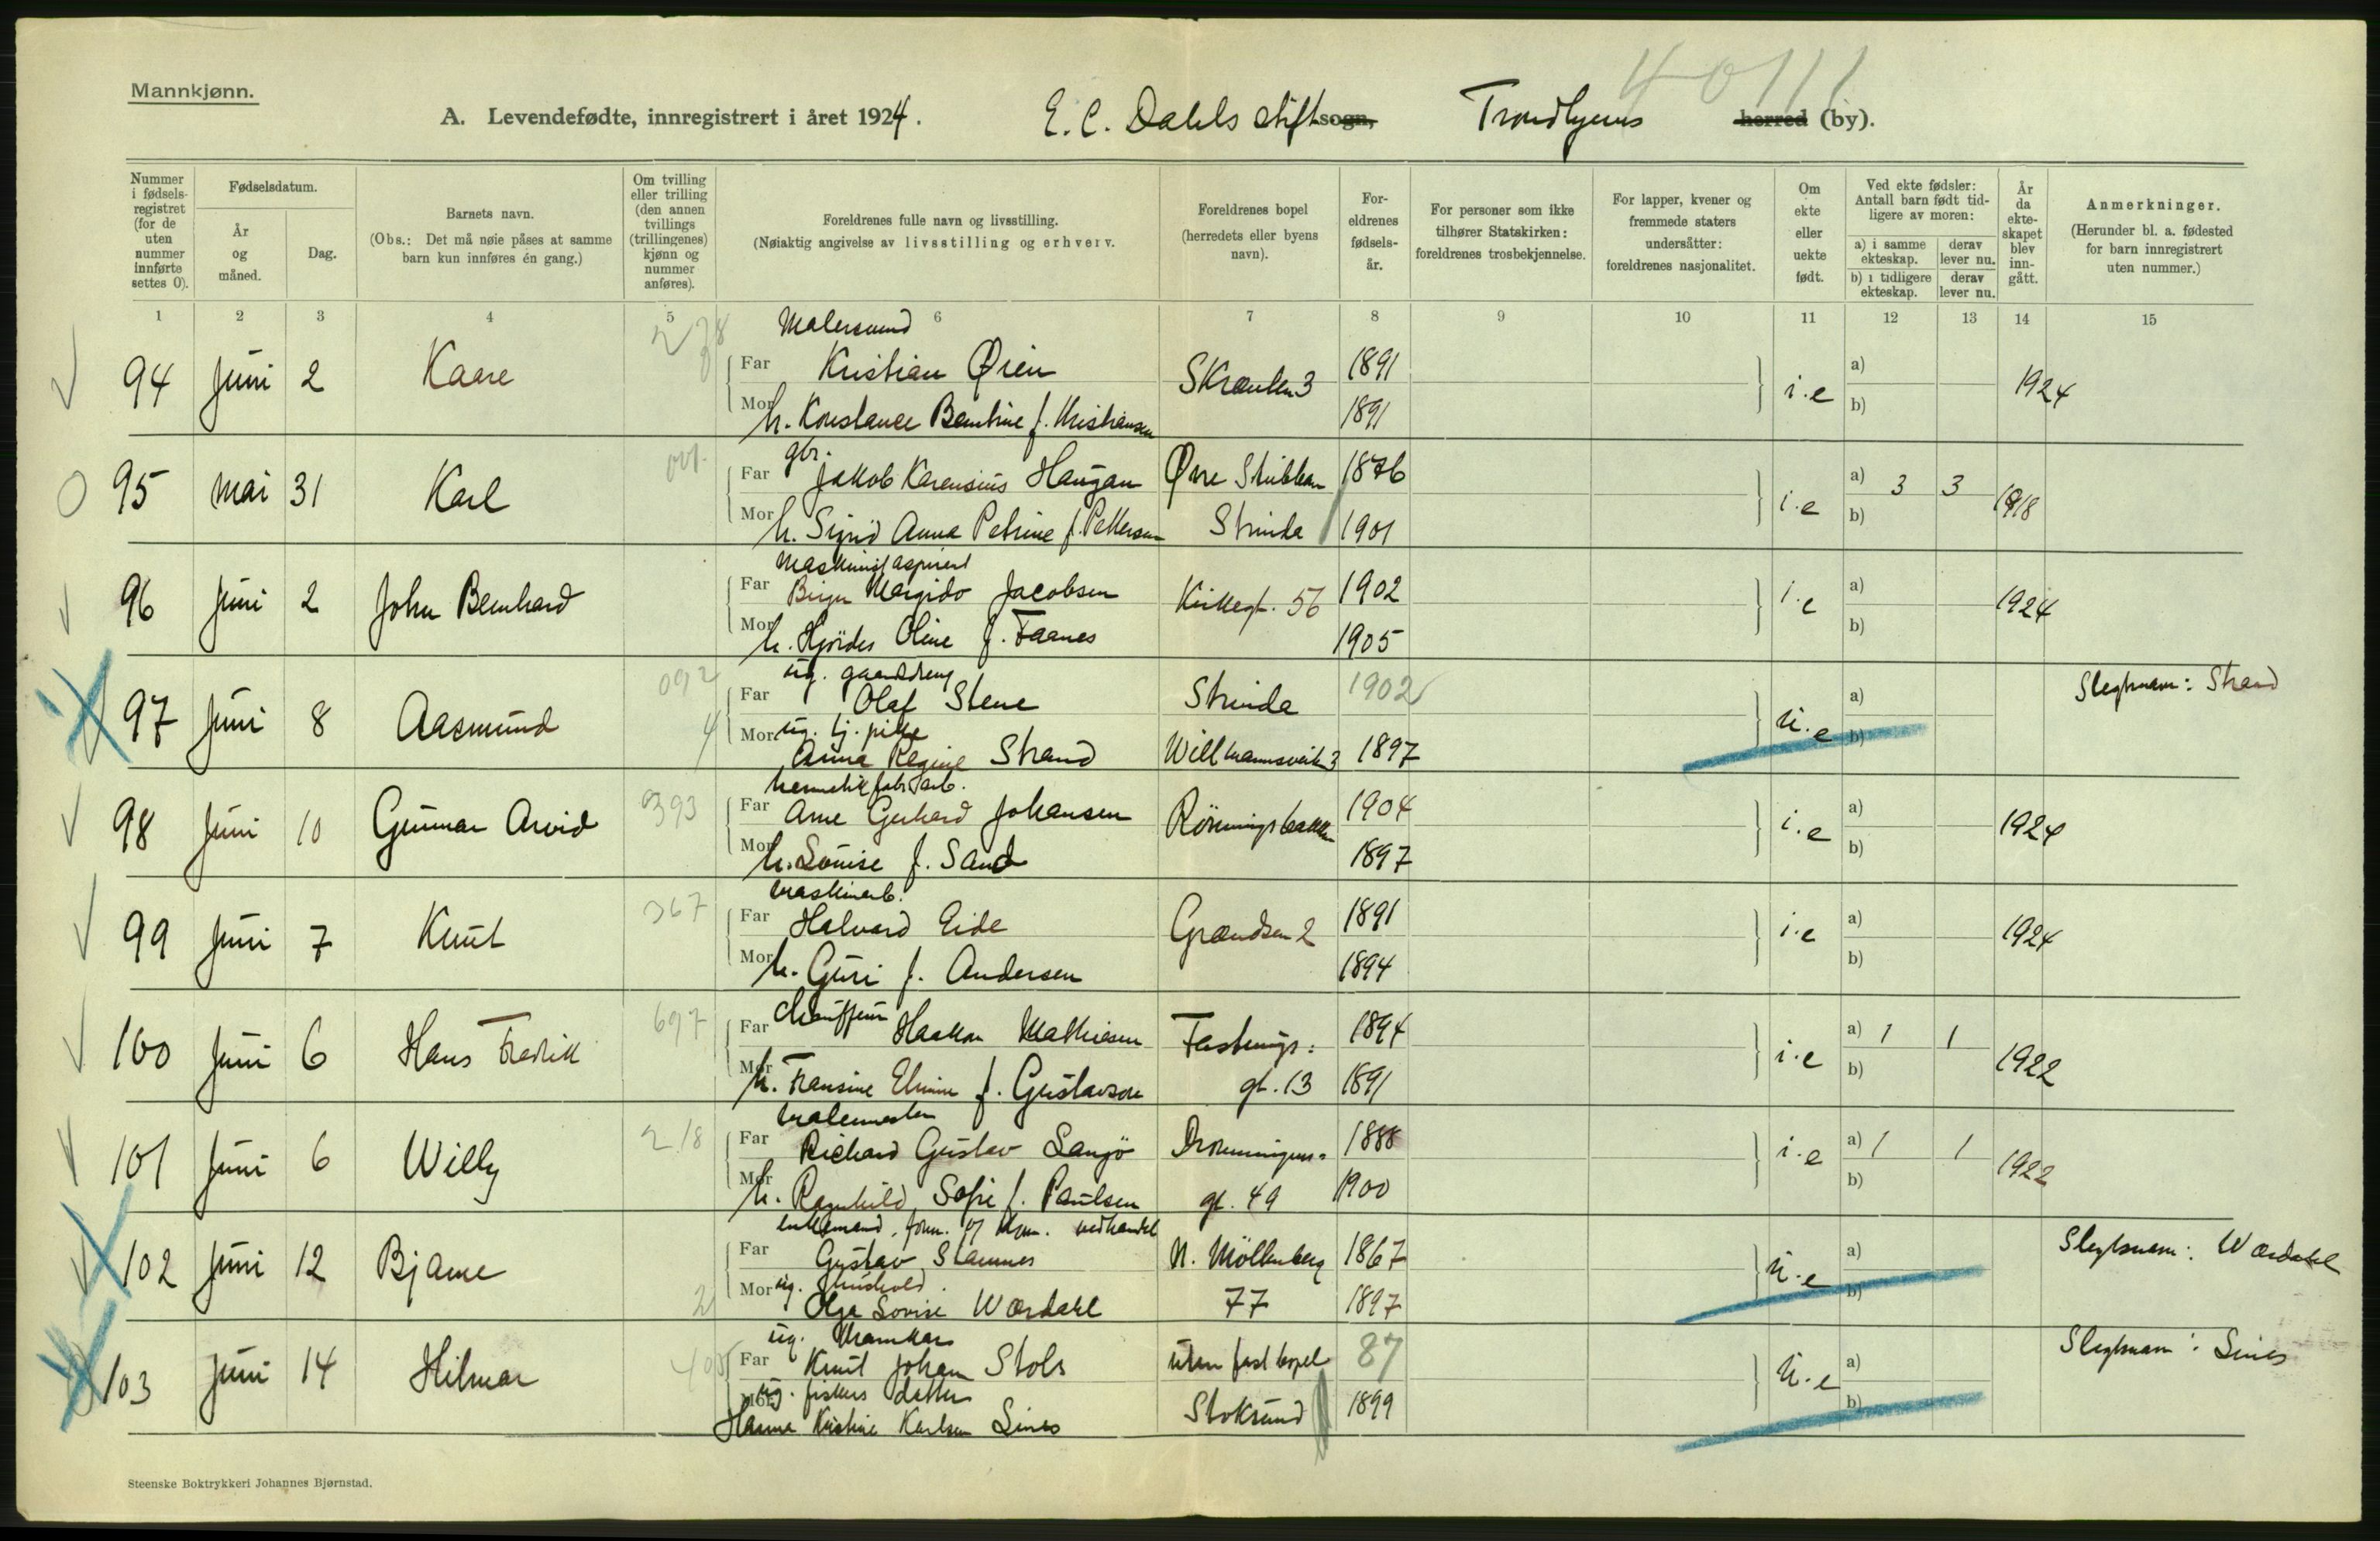 Mannkjønn.
4011
A. Levendefødte, innregistrert i året 1924. E. C. Dahls stiftsogn, Trondhjems herred (by).
Nummer i fødselsregistret (for de uten nummer innførte settes 0).
Fødselsdatum.
År og måned.
Dag.
Barnets navn.
(Obs.: Det må nøie påses at samme barn kun innføres én gang.)
Om tvilling eller trilling (den annen tvillings (trillingenes) kjønn og nummer anføres).
Foreldrenes fulle navn og livsstilling.
(Nøiaktig angivelse av livsstilling og erhverv.
Foreldrenes bopel (herredets eller byens navn).
Foreldrenes fødselsår.
For personer som ikke tilhører Statskirken: foreldrenes trosbekjennelse.
For lapper, kvener og fremmede staters undersåtter: foreldrenes nasjonalitet.
Om ekte eller uekte født.
Ved ekte fødsler: Antall barn født tidligere av moren:
a) i samme ekteskap. derav lever nu.
b) i tidligere ekteskap. derav lever nu.
År da ekteskapet blev inngått.
Anmerkninger.
(Herunder bl. a. fødested for barn innregistrert uten nummer.)
1 2 3 4 5 6 7 8 9 10 11 12 13 14 15
Malersvend
94 juni 2 Kaare Far Kristian Øien 1891 a)
Skrenten 3 i.e 1924
Mor h. Konstance Berntine f. Kristiansen 1891 b)
gbr.
95 mai 31 Karl Far Jakob Karensius Haugan Øvre Stubban 1876 a) 3 3
i.e 1918
Mor h. Sigrid Anna Petrine f. Pettersen Strinda 1901 b)
Maskinistaspirant
96 juni 2 John Bernhard Far Birger Margido Jacobsen Kirkegt. 56 1902 a)
i.e 1924
Mor h. Hjørdes Oline f. Faanes 1905 b)
ug. gaardsdreng
092 Far Olaf Stene Strinda 1902 a) Slegtsnavn: Strand
97 juni 8 Aasmund u.e
4 Mor ug. tj. pike b)
Anna Regine Strand Willmannsveita 3 1897
hermetikfabr.arb.
98 juni 10 Gunnar Arvid 393 Far Arne Gerhard Johansen Rönningsbakken 1904 a)
i.e 1924
Mor h. Louise f. Sand 1897 b)
maskinarb.
99 juni 7 Knut 367 Far Halvard Eide Grændsen 2 1891 a)
i.e 1924
Mor h. Guri f. Andersen 1894 b)
Chauffeur
100 juni 6 Hans Fredrik 697 Far Haakon Mathiesen Festnings- 1894 a) 1 1
i.e 1922
Mor h. Fransine Elvine f. Gustavson gt. 13 1891 b)
malermester
101 juni 6 Willy 218 Far Richard Gustav Langö Dronningens- 1888 a) 1 1
i.e 1922
Mor h. Ragnhild Sofie f. Paulsen gt. 49 1900 b)
enkemand, vedhandel
102 juni 12 Bjarne Far Gustav Stamnes N. Möllenberg 1867 a) Slegtsnavn: Wærdahl
u.e
2 Mor ug. hushold. b)
Olga Lovise Wærdahl 77 1897
ug. Kramkar
103 juni 14 Hilmar 405 Far Knut Johan Stols uten fast bopel 87 a) Slegtsnavn: Sines
u.e
Mor ug. fiskers datter Stoksund 1899 b)
Hanna Kristine Karlsen Sines
Steenske Boktrykkeri Johannes Bjørnstad.